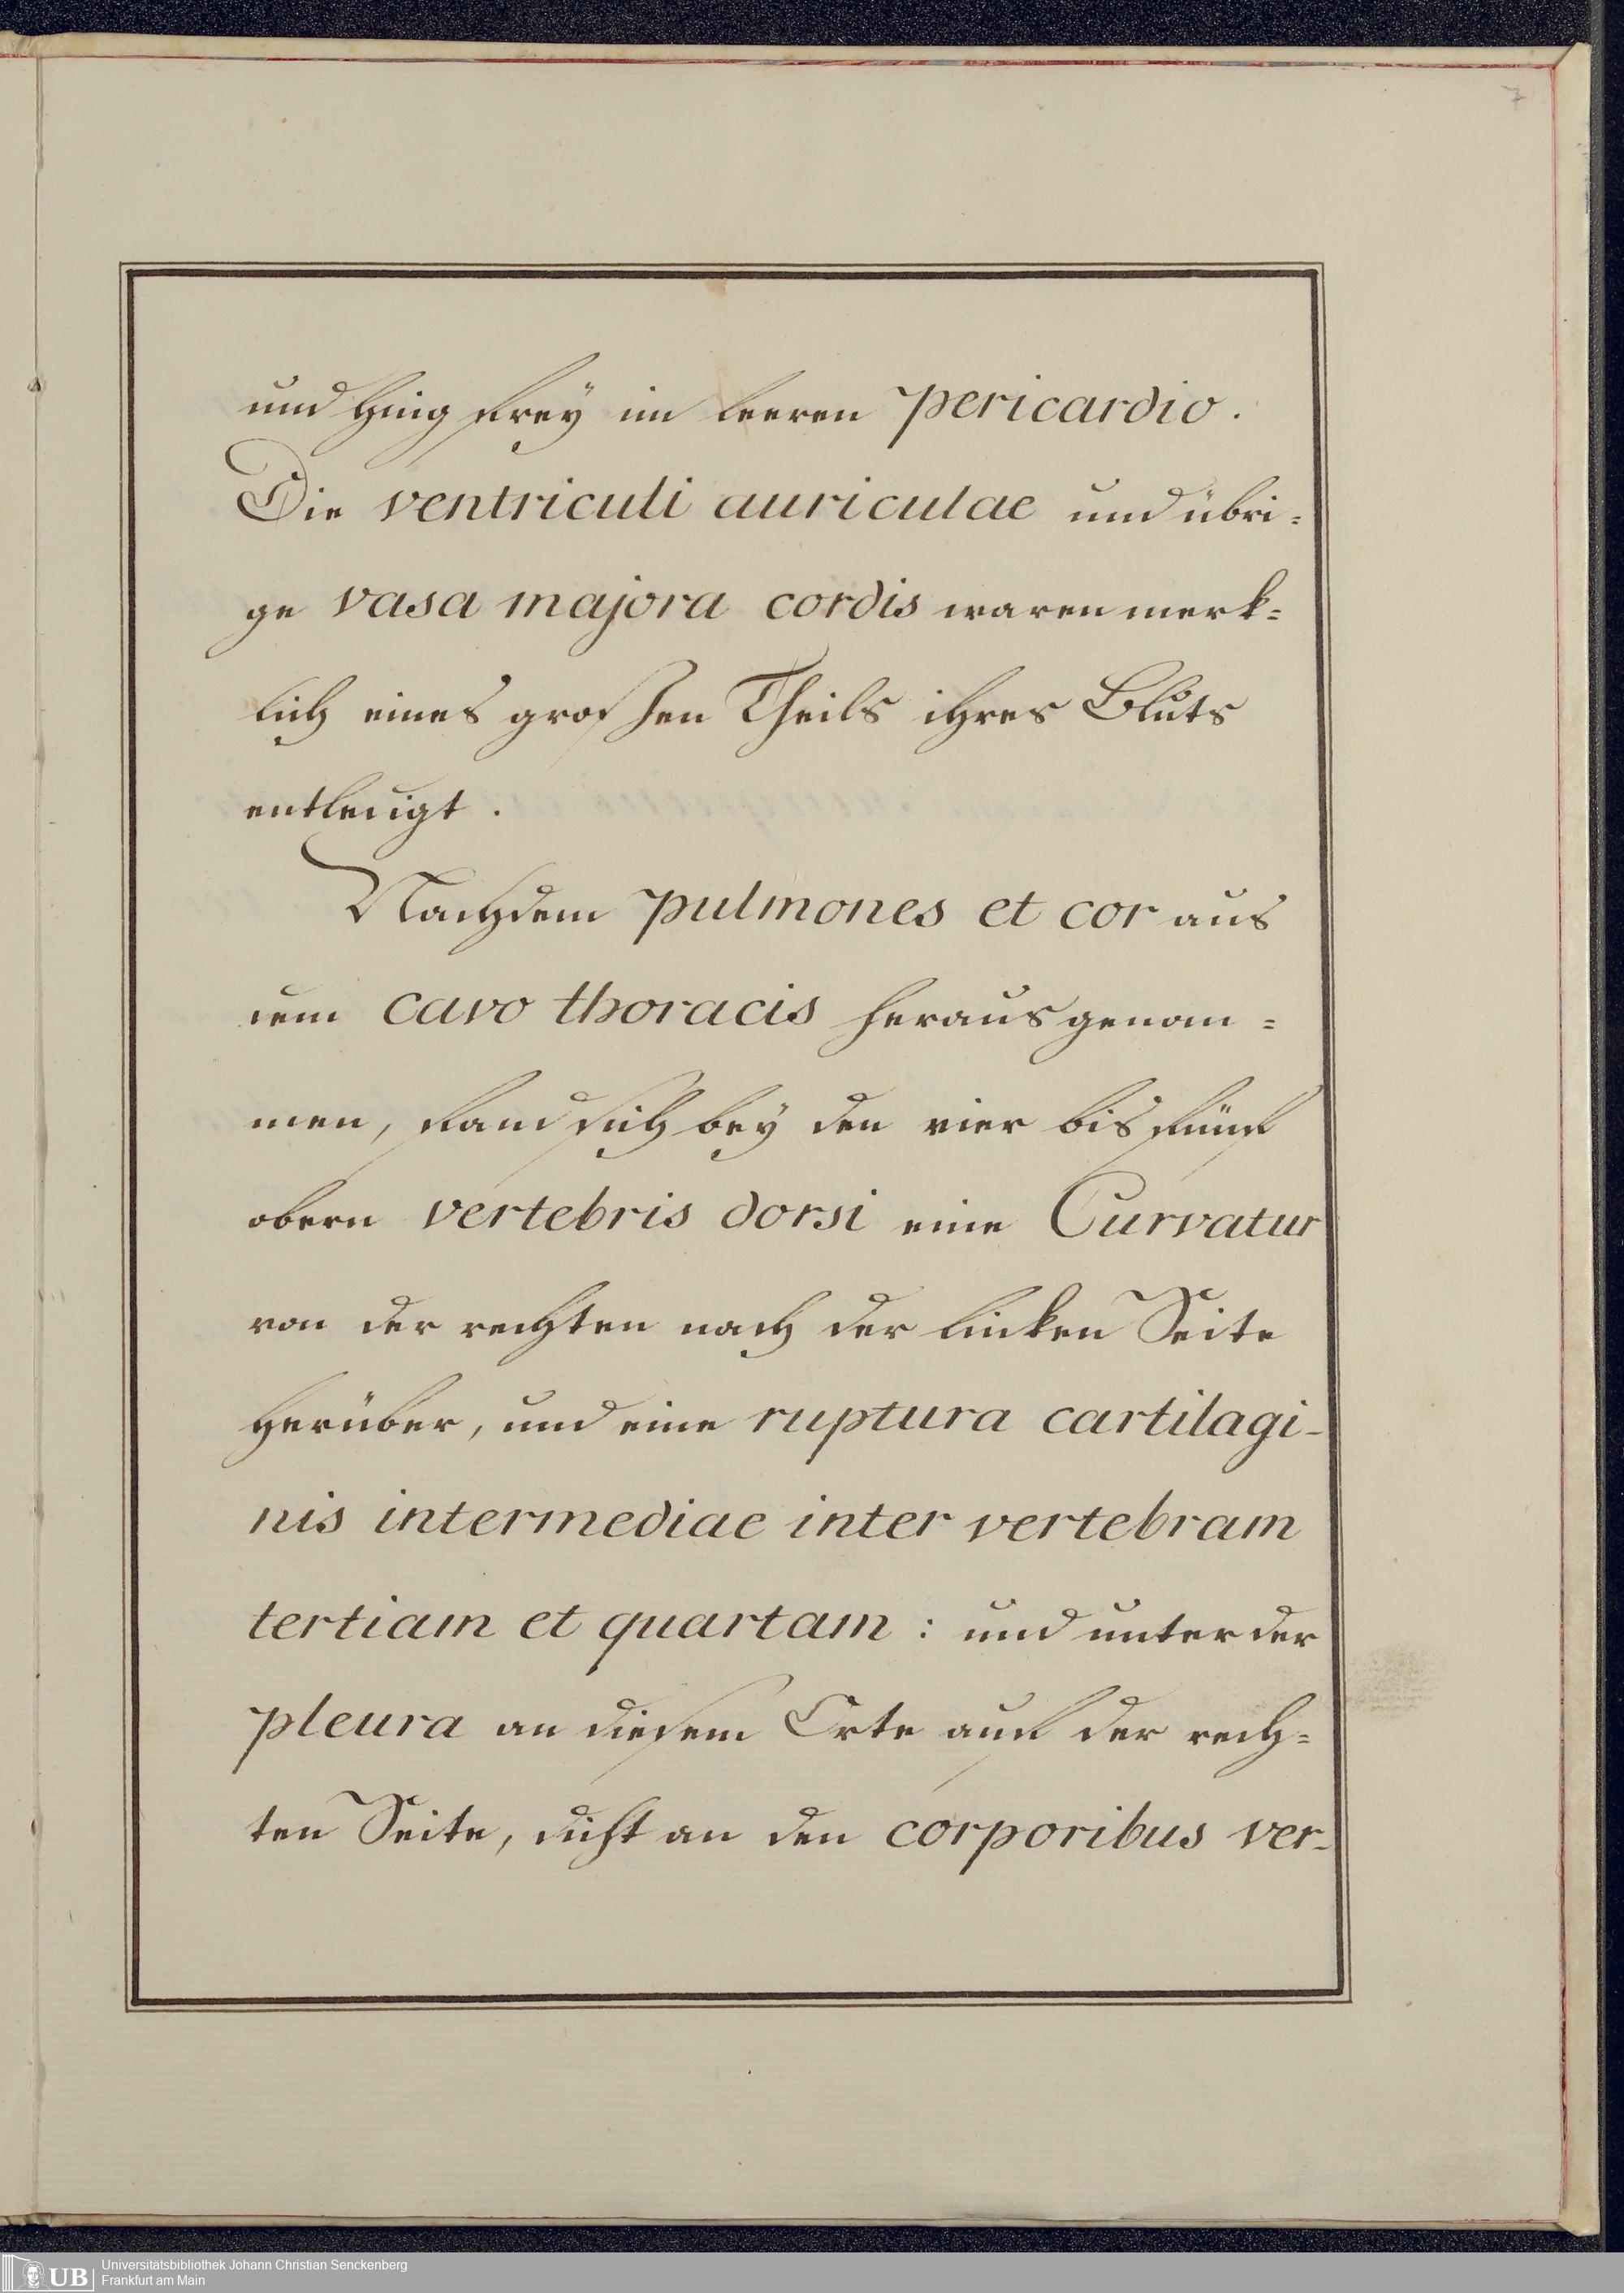 7
und hing frey im leeren pericardio.
Die ventriculi auriculae und übri=
ge vasa majora cordis waren merk=
lich eines grosen Theils ihres Bluts
entledigt.
Nachdem pulmones et cor aus
dem cavo thoracis herausgenom=
men, fand sich bey den vier bis fünf
obern vertebris dorsi eine Curvatur
von der rechten nach der linken Seite
herüber, und eine ruptura cartilagi-
nis intermediae inter vertebram
tertiam et quartam: und unter der
pleura an diesem Orte auf der rech=
ten Seite, dicht an den corporibus ver-
UB
Universitätsbibliothek Johann Christian Senckenberg
Frankfurt am Main